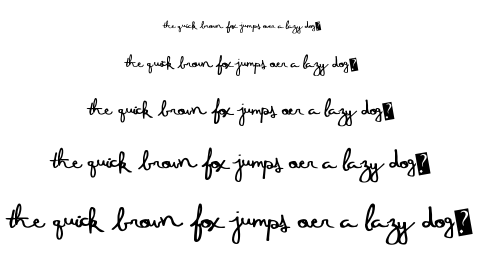 the quick brown fox jumps oer a lazy dog?
the quick brown fox jumps oer a lazy dog?
the quick brown fox jumps oer a lazy dog?
the quick brown fox jumps oer a lazy dog?
the quick brown fox jumps oer a lazy dog?